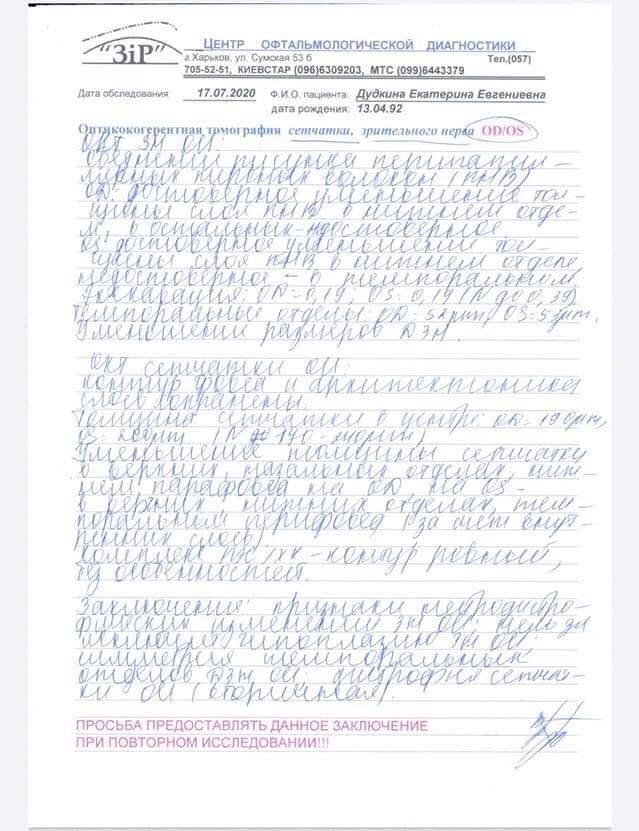 "ЗіР"
ЦЕНТР ОФТАЛЬМОЛОГИЧЕСКОЙ ДИАГНОСТИКИ
г.Харьков, ул. Сумская 53 б Тел.(057)
705-52-51, КИЕВСТАР (096)6309203, МТС (099)6443379
Дата обследования: 17.07.2020 Ф.И.О. пациента: Дудкина Екатерина Евгениевна
дата рождения: 13.04.92
Оптиккокогерентная томография сетчатки, зрительного нерва OD/OS
ОКТ ЗН ОИ:
Обеднение рисунка перипапил-
лярных нервных волокон (ПНВ)
OD: достоверное уменьшение тол-
щины слоя ПНВ в нижнем отде-
ле, в остальных - недостоверное
OS: достоверное уменьшение тол-
щины слоя ПНВ в нижнем отделе
недостоверное - в темпоральном.
Экскавация: OD=0,19; OS=0,19 (N до 0,39).
Темпоральные отделы: OD=52μm, OS=53μm.
Уменьшение размеров ДЗН.
ОКТ сетчатки ОИ:
Контур фовеа и архитектоника
слоев сохранены.
Толщина сетчатки в центре: OD=190μm,
OS= (N 170-
Уменьшение толщины сетчатки
в верхних, назальных отделах, ниж-
нем парафовеа на OD, на OS -
в верхних, нижних отделах, тем-
поральном перифовеа (за счет внут-
ренних слоев)
Комплекс ПЭ/ХК - контур ровный,
без особенностей.
Заключение: признаки нейродистро-
фических изменений ЗН ОИ; нельзя
исключить гипоплазию ЗН ОИ;
темпоральных
отделов ДЗН ОИ; дистрофия сетчат-
ки ОИ (вторичная).
ПРОСЬБА ПРЕДОСТАВЛЯТЬ ДАННОЕ ЗАКЛЮЧЕНИЕ
ПРИ ПОВТОРНОМ ИССЛЕДОВАНИИ!!!